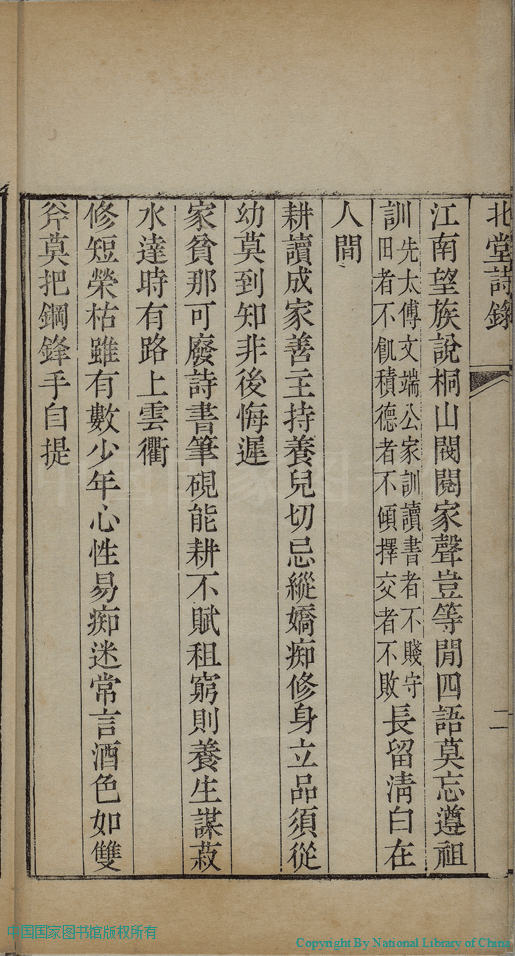 北堂詩錄
二
江南望族說桐山閥閱家聲豈等閒四語莫忘遵祖
訓先太傅文端公家訓讀書者不賤守
田者不飢積德者不傾擇交者不敗長留清白在
人間
耕讀成家善主持養兒切忌縱嬌痴修身立品須從
幼莫到知非後悔遲
家貧那可廢詩書筆硯能耕不賦租窮則養生謀菽
水達時有路上雲衢
修短榮枯雖有數少年心性易痴迷常言酒色如雙
斧莫把鋼鋒手自提
中国国家图书馆版权所有
Copyright By National Library of China